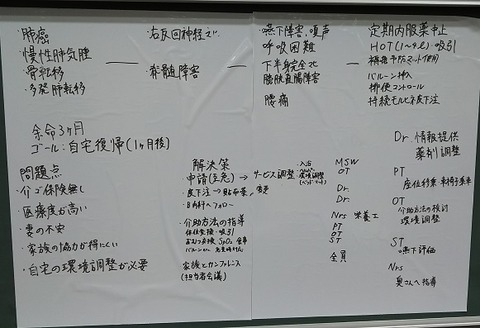 肺癌
慢性肺気腫
骨転移
多発肺転移
右反回神経マヒ
脊髄障害
嚥下障害、嗄声
呼吸困難
下半身完全マヒ
膀胱直腸障害
腰痛
定期内服薬中止
HOT(1〜4ℓ)吸引
褥瘡予防マット使用
バルーン挿入
排便コントロール
持続モルヒネ皮下注
余命3ヶ月
ゴール:自宅復帰(1ヶ月後)
問題点
・介ゴ保険無し
・医療度が高い
・妻の不安
・家族の協力が得にくい
・自宅の環境調整が必要
解決策
申請(至急)→サービス調整
・入浴
・環境調整
(ベッド・マット)
・皮下注→貼布薬/変更
・介助方法の指導
体位交換・吸引
おむつ交換 SpO₂
家族とカンファレンス
(担当者会議)
MSW
OT
Dr.
Dr.
Nrs 栄養士
PT
OT
ST
全員
Dr 情報提供
薬剤調整
PT
座位・移乗・車椅子乗車
OT
介助方法の検討
環境調整
ST
嚥下評価
Nrs
奥さんへ指導